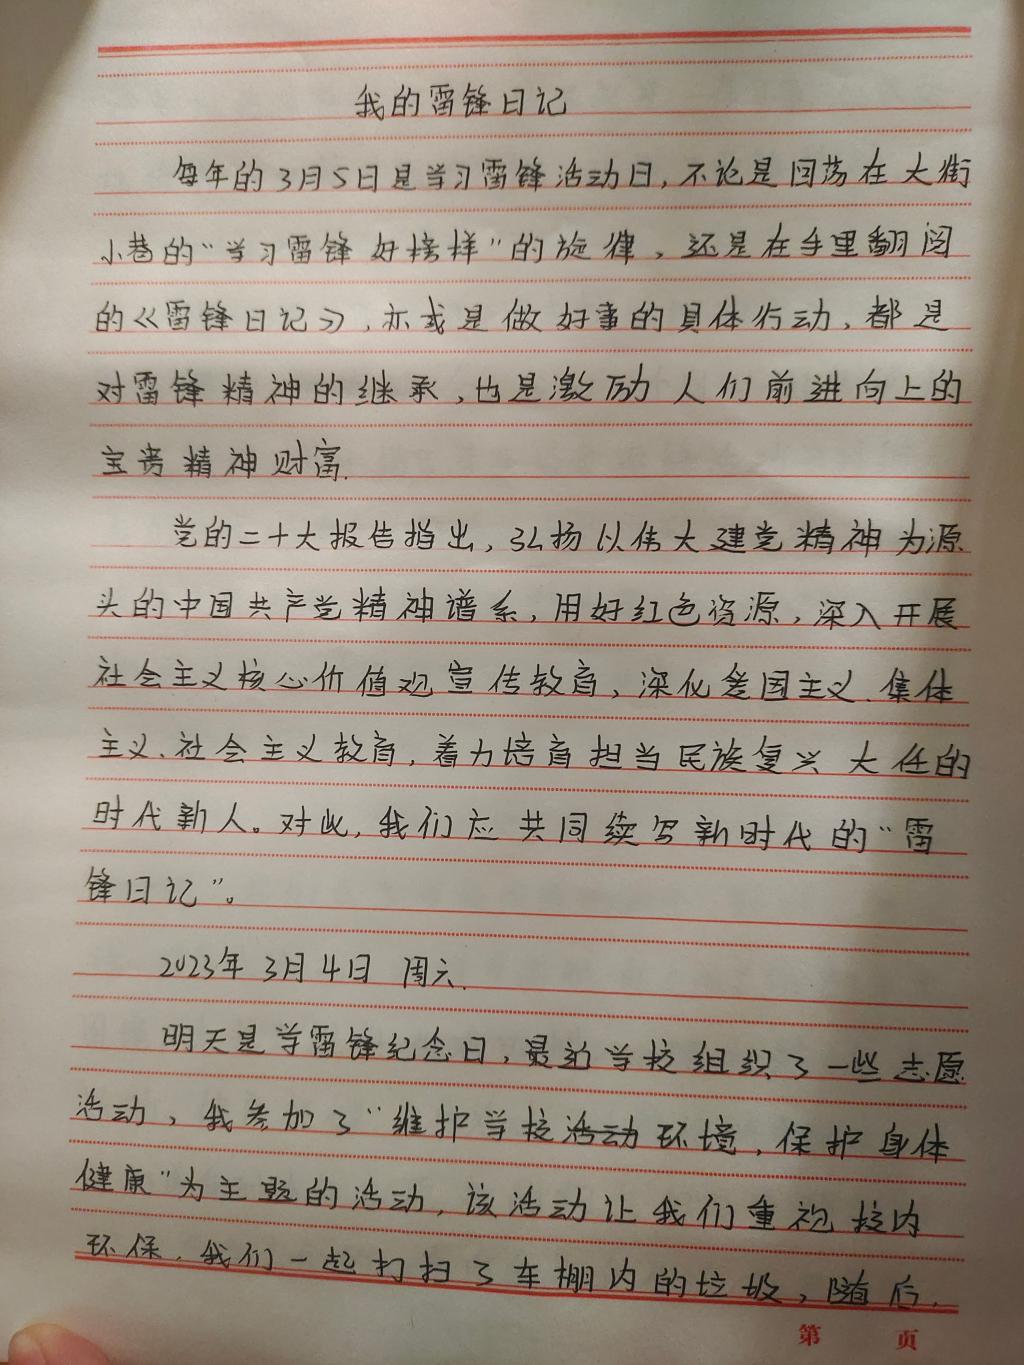 我的雷锋日记
每年的3月5日是学习雷锋活动日，不论是回荡在大街
小巷的“学习雷锋好榜样”的旋律、还是在手里翻阅
的《雷锋日记》，亦或是做好事的具体行动，都是
对雷锋精神的继承，也是激励人们前进向上的
宝贵精神财富.
党的二十大报告指出，弘扬以伟大建党精神为源
头的中国共产党精神谱系，用好红色资源，深入开展
社会主义核心价值观宣传教育，深化爱国主义、集体
主义、社会主义教育，着力培育担当民族复兴大任的
时代新人。对此，我们应共同续写新时代的“雷
锋日记”。
2023年3月4日 周六.
明天是学雷锋纪念日，最近学校组织了一些志愿
活动，我参加了“维护学校活动环境，保护身体
健康”为主题的活动，该活动让我们重视校内
环保，我们一起打扫了车棚内的垃圾，随后，
第 页